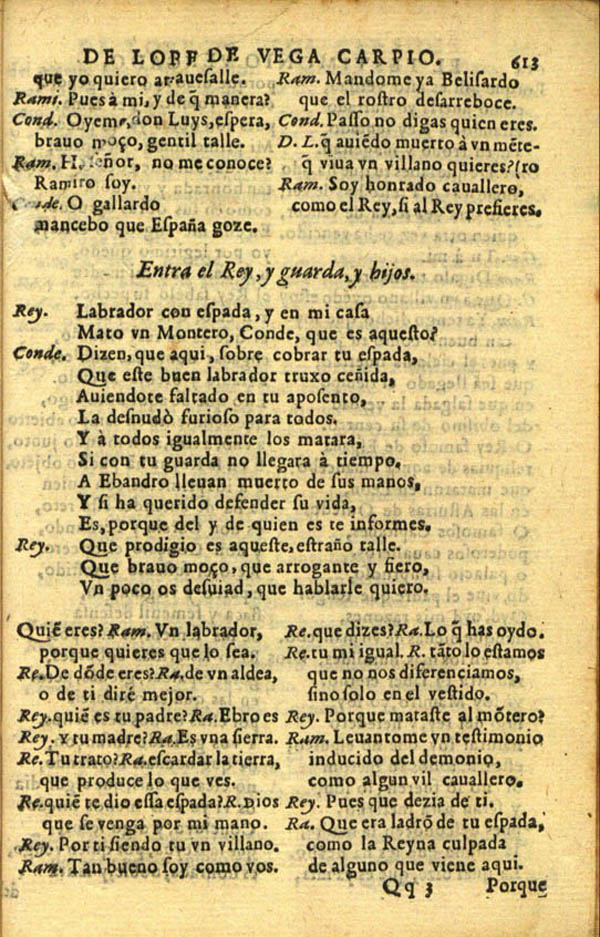 DE LOPE DE VEGA CARPIO. 613
que yo quiero auassalle.
Rami. Pues à mi, y de q̃ manera?
Cond. Oyeme, don Luys, espera,
brauo moço, gentil talle.
Ram. H. señor, no me conoce?
Ramiro soy.
Conde. O gallardo
mancebo que España goze.
Ram. Mandome ya Belisardo
que el rostro desarreboce.
Cond. Passo no digas quien eres.
D. L. q̃ auiẽdo muerto à vn mõte-
q̃ viua vn villano quieres? (ro
Ram. Soy honrado cauallero,
como el Rey, si al Rey prefieres.
Entra el Rey, y guarda, y hijos.
Rey. Labrador con espada, y en mi casa
Mato vn Montero, Conde, que es aquesto?
Conde. Dizen, que aqui, sobre cobrar tu espada,
Que este buen labrador truxo ceñida,
Auiendote faltado en tu aposento,
La desnudò furioso para todos.
Y à todos igualmente los matara,
Si con tu guarda no llegara à tiempo.
A Ebandro lleuan muerto de sus manos,
Y si ha querido defender su vida,
Es, porque del y de quien es te informes.
Rey. Que prodigio es aqueste, estraño talle.
Que brauo moço, que arrogante y fiero,
Vn poco os desuiad, que hablarle quiero.
Quiẽ eres? Ram. Vn labrador,
porque quieres que lo sea.
Re. De dõde eres? Ra. de vn aldea,
o de ti dirè mejor.
Rey. quiẽ es tu padre? Ra. Ebro es
Rey. Y tu madre? Ra. Es vna sierra.
Re. Tu trato? Ra. escardar la tierra,
que produce lo que ves.
Re. quiẽ te dio essa espada? R. Dios
que se venga por mi mano.
Rey. Por ti siendo tu vn villano.
Ram. Tan bueno soy como vos.
Re. que dizes? Ra. Lo q̃ has oydo.
Re. tu mi igual. R. tãto lo estamos
que no nos diferenciamos,
sino solo en el vestido.
Rey. Porque mataste al mõtero?
Ram. Leuantome vn testimonio
inducido del demonio,
como algun vil cauallero.
Rey. Pues que dezia de ti.
Ra. Que era ladrõ de tu espada,
como la Reyna culpada
de alguno que viene aqui.
Qq 3 Porque